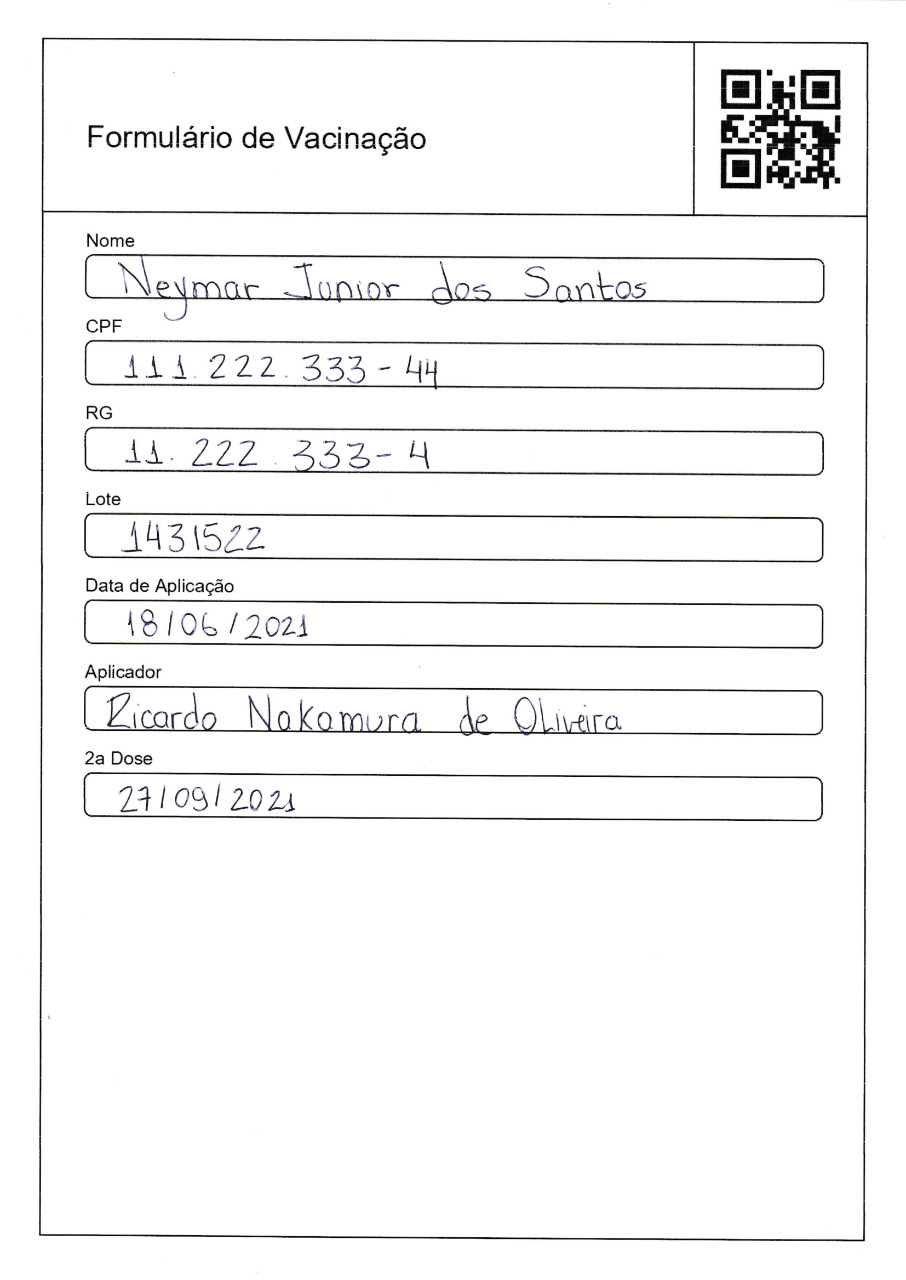 Formulário de Vacinação
Nome
Neymar Junior dos Santos
CPF
111.222.333-44
RG
11.222.333-4
Lote
1431522
Data de Aplicação
18/06/2021
Aplicador
Ricardo Nakamura de Oliveira
2a Dose
27/09/2021